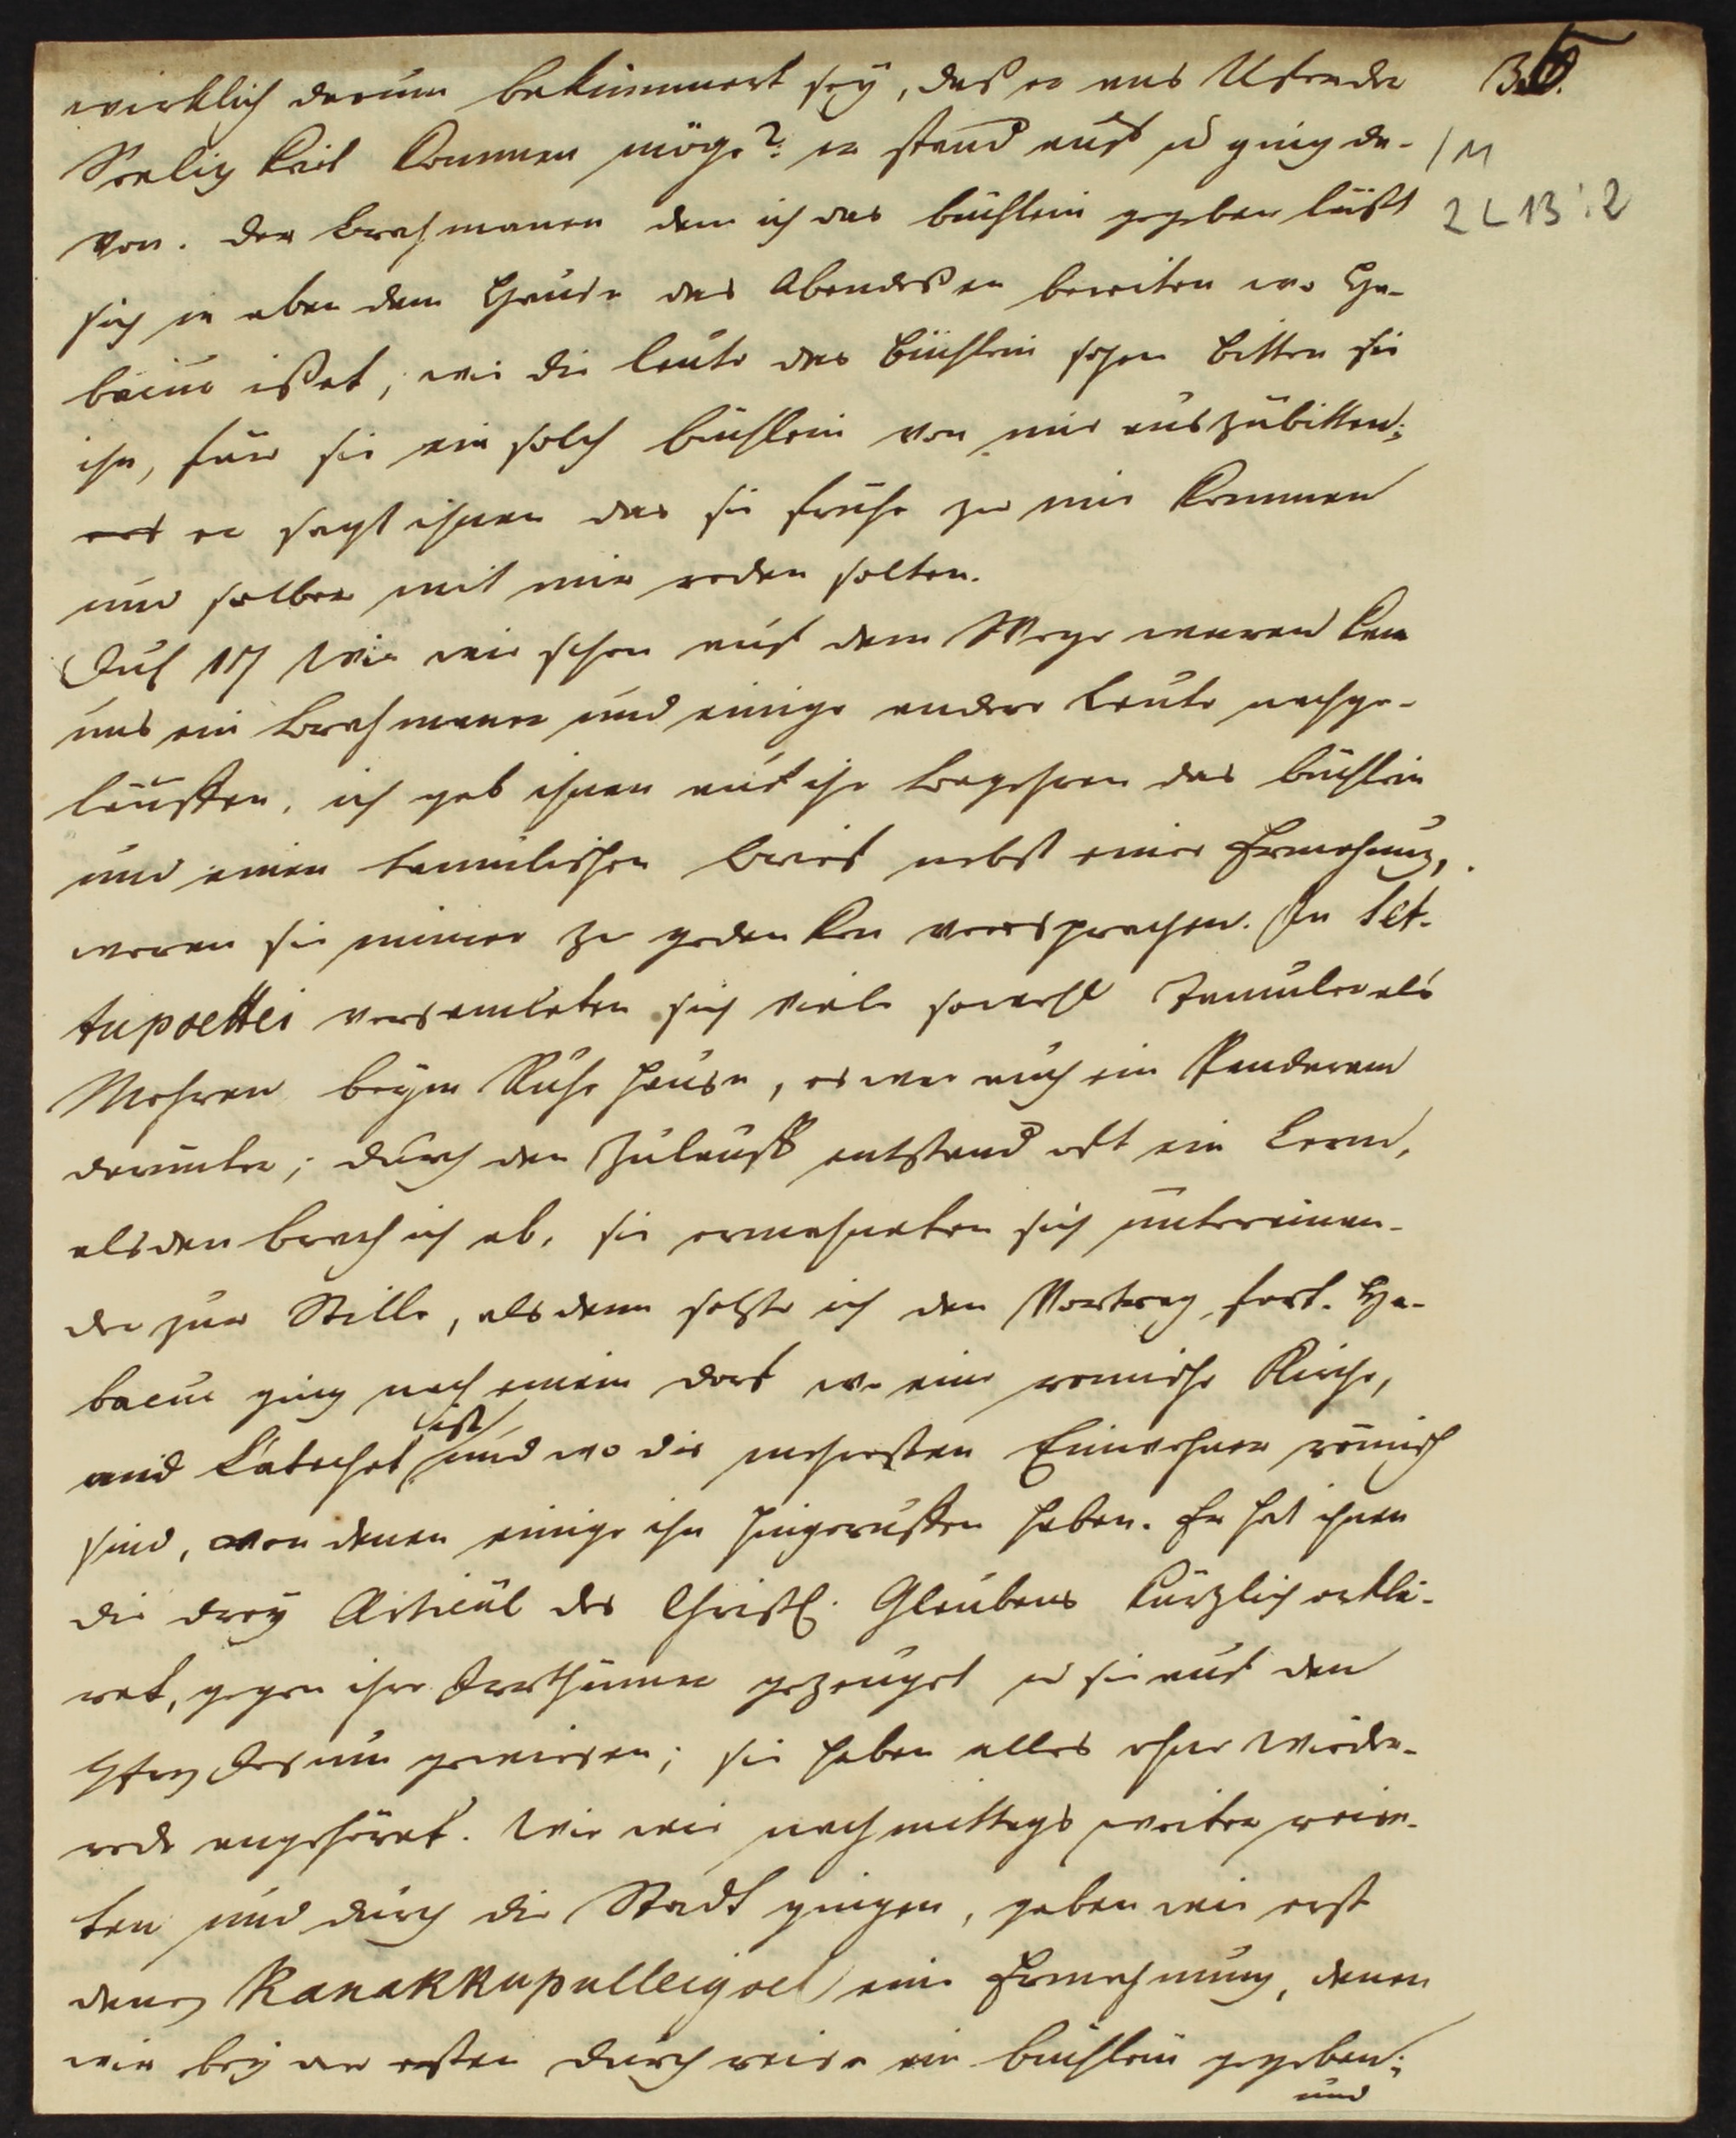 wircklich darum bekümmert sey, daß er aus
Seeligkeit kommen möge? er stand auf u ging da-
von. der Brahmaner dem ich das büchlein gegeben läßt
sich in eben dem Hause das Abendeßen bereiten wo Ha-
bacuc ißet, wie die leute das büchlein sehen bitten sie
ihn, für sie ein solch büchlein von mir auszubitten;
er sagt ihnen das sie frühe zu mir kommen
und selber mit mir reden solten.
17 Wie wir schon auf dem Wege waren kam
uns ein Brahmaner und einige andere leute nachge-
lauffen, ich gab ihnen auf ihr begehren das büchlein
und einen tamulischen brief nebst einer Ermahnung,
woran sie immer zu gedenken versprachen. In Set-
tupoettei versamleten sich viele sowohl Tamuler als
Mohren beym Ruhe hause, es war auch ein Pandaram
darunter; durch den Zulauff entstand oft ein Lerm,
alsden brach ich ab, sie ermahneten sich untereinan-
der zur Stille, als denn setzte ich den Vortrag fort. Ha-
bacuc ging nach einem dorf wo eine romische Kirche,
und Catechet ist und wo die mehresten Einwohner römisch
sind, von denen einige ihn hingeruffen haben. Er hat ihnen
die drey Articul des Christl. Glaubens kürzlich erklä-
ret, gegen ihre Irrthümer gezeuget u sie auf den
Herrn Jesum gewiesen; sie haben alles ohne Wieder-
rede angehöret. Wie wir nachmittags weiter reise-
ten und durch die Stadt gingen, gaben wir erst
denen Kanakkupulleigoel eine Ermahnung, denen
wir bey der ersten durch reise ein büchlein gegeben;
und
/11
2 L 13 : 2